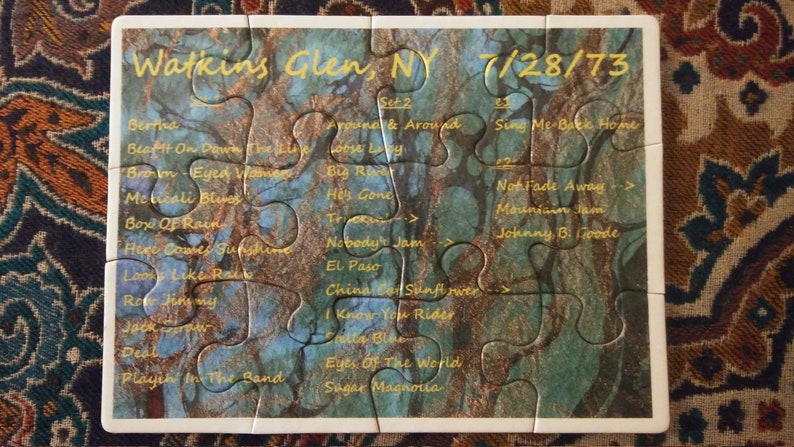 Watkins Glen, NY 7/28/73
Bertha
Beat It On Down The Line
Brown-Eyed Women
Mexicali Blues
Box Of Rain
Here Comes Sunshine
Looks Like Rain
Row Jimmy
Jack Straw
Deal
Playin' In The Band
Set 2
Around & Around
Loose Lucy
Big River
He's Gone
Truckin' -->
Nobody's Jam -->
El Paso
China Cat Sunflower -->
I Know You Rider
Stella Blue
Eyes Of The World
Sugar Magnolia
e1
Sing Me Back Home
e2
Not Fade Away -->
Mountain Jam
Johnny B. Goode